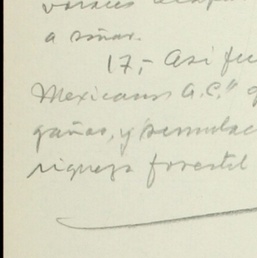 a soñar.
17,- Asi fu
Mexicanos A.C." 
gañas, y simulac
riqueza forestal